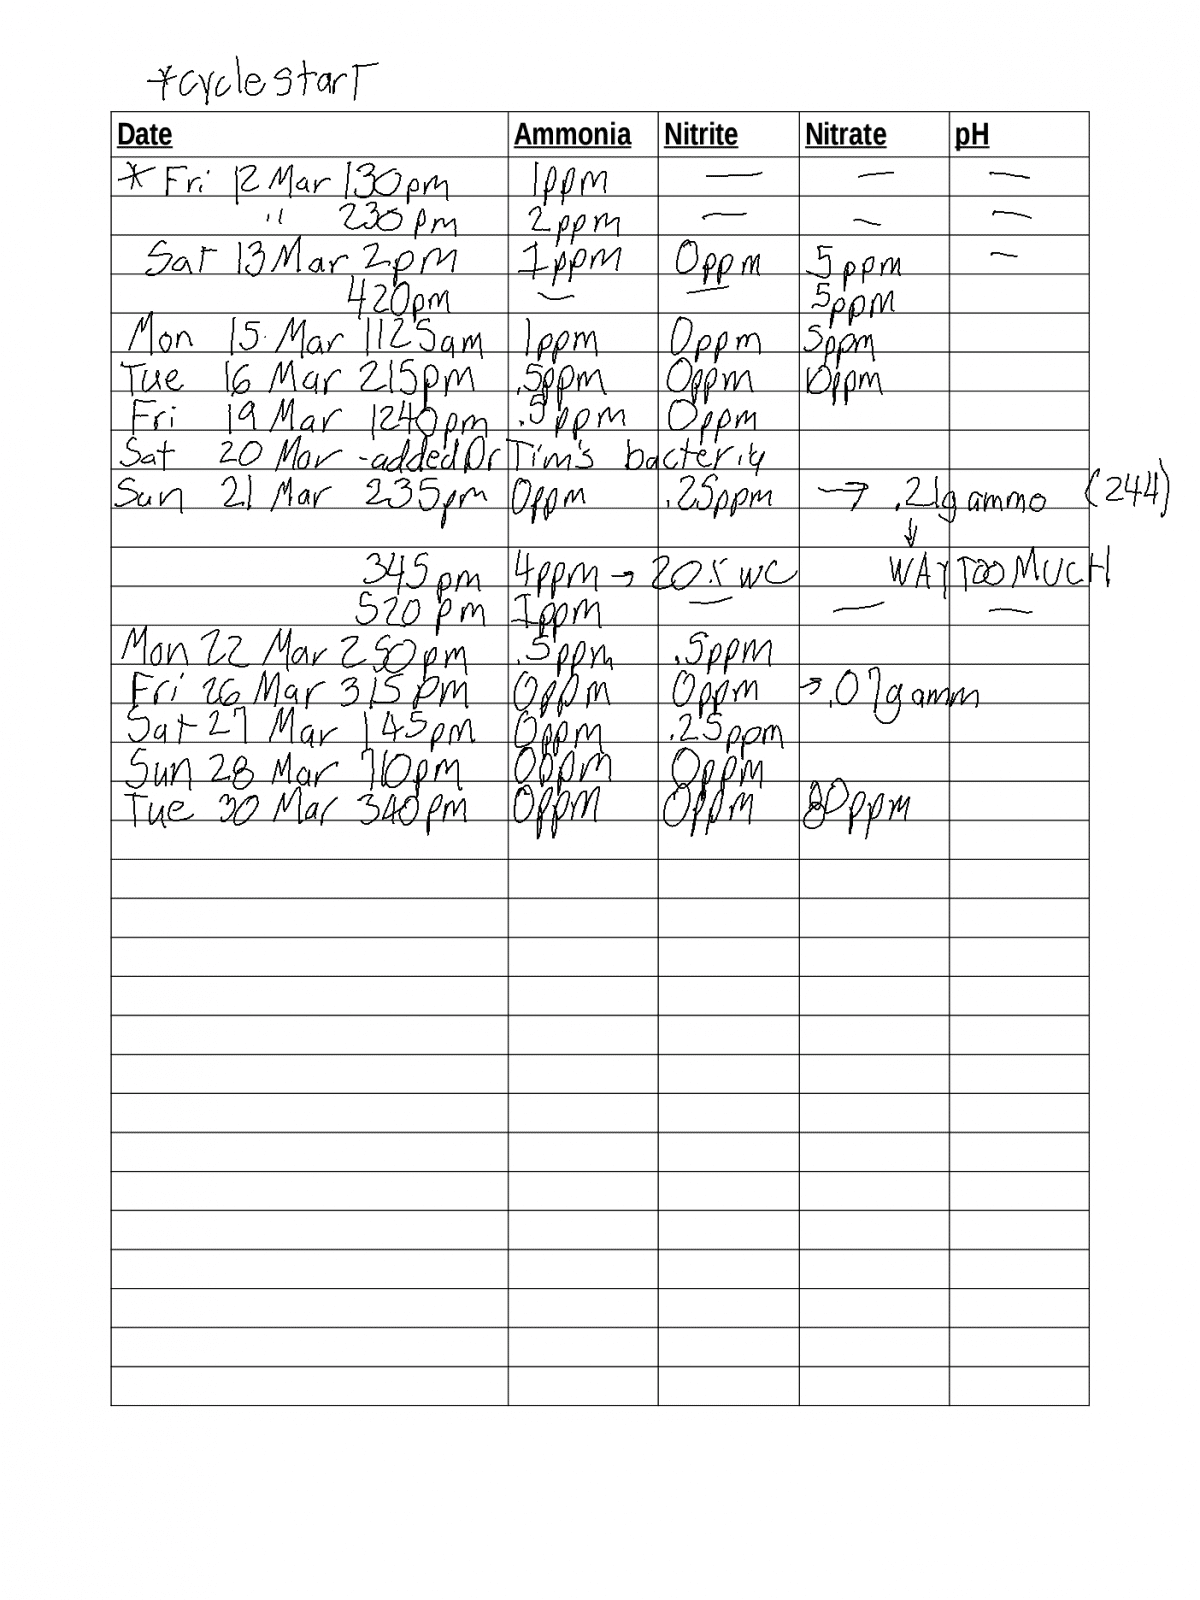 *cycle start
Date Ammonia Nitrite Nitrate pH
* Fri 12 Mar 130pm 1ppm — — —
" 230pm 2ppm — — —
Sat 13 Mar 2pm 1ppm 0ppm 5ppm —
420pm — — 5ppm
Mon 15 Mar 1125am 1ppm 0ppm 5ppm
Tue 16 Mar 215pm .5ppm 0ppm 10ppm
Fri 19 Mar 1240pm .5ppm 0ppm
Sat 20 Mar -added Dr Tim's bacteria
Sun 21 Mar 235pm 0ppm .25ppm → .21g ammo (244)
↓
345pm 4ppm → 20% WC WAY TOO MUCH
520pm 1ppm — — —
Mon 22 Mar 250pm .5ppm .5ppm
Fri 26 Mar 315pm 0ppm 0ppm → .07g amm
Sat 27 Mar 145pm 0ppm .25ppm
Sun 28 Mar 710pm 0ppm 0ppm
Tue 30 Mar 340pm 0ppm 0ppm 80ppm